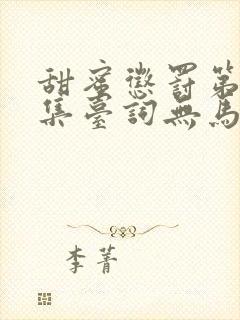 甜蜜懲罰第
集臺詞無馬
李菁